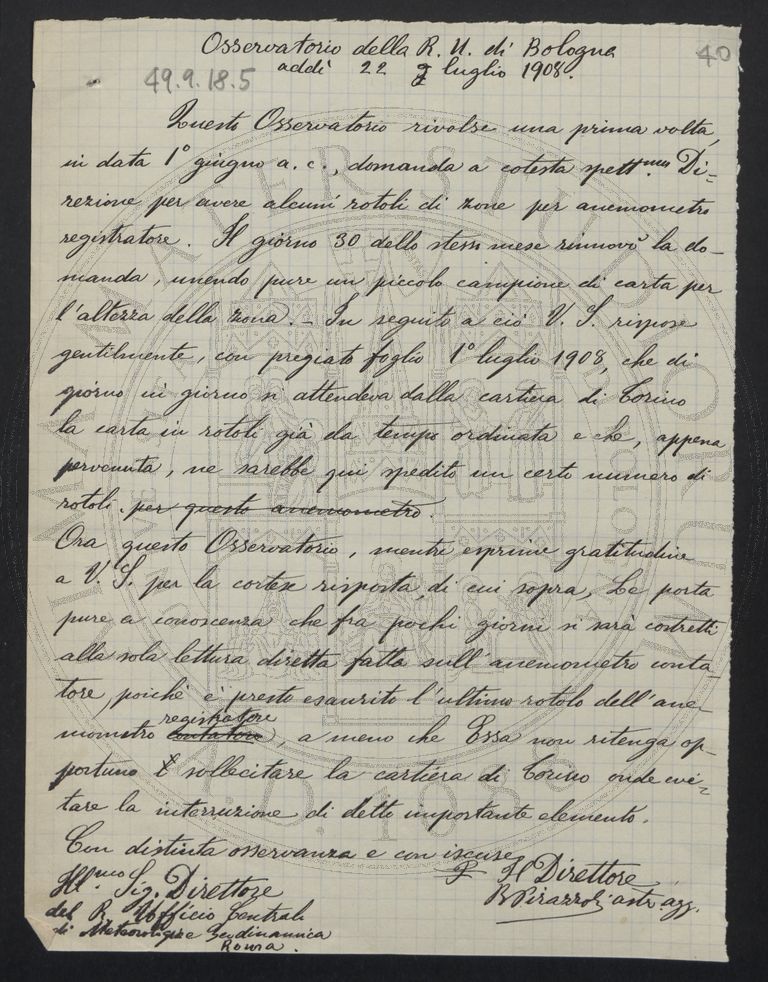 Osservatorio della R. U. di Bologna
40
addì 22 luglio 1908.
49.9.18.5
Questo Osservatorio rivolse una prima volta,
in data 1° giugno a. c., domanda a cotesta spett.ma Di=
rezione per avere alcuni rotoli di zone per anemometro
registratore. Il giorno 30 dello stesso mese rinnovò la do-
manda, unendo pure un piccolo campione di carta per
l'altezza della zona. - In seguito a ciò V. S. rispose
gentilmente, con pregiato foglio 1° luglio 1908, che di
giorno in giorno si attendeva dalla cartiera di Torino
la carta in rotoli già da tempo ordinata e che, appena
pervenuta, ne sarebbe qui spedito un certo numero di
rotoli. per questo anemometro.
Ora questo Osservatorio, mentre esprime gratitudine
a V. S. per la cortese risposta, di cui sopra, Le porta
pure a conoscenza che fra pochi giorni si sarà costretti
alla sola lettura diretta fatta sull'anemometro conta-
tore, poichè è presto esaurito l'ultimo rotolo dell'ane-
registratore
mometro contatore, a meno che Essa non ritenga op-
portuno sollecitare la cartiera di Torino onde evi=
tare la interruzione di detto importante elemento.
Con distinta osservanza e con iscuse
Il Direttore
Ill.mo Sig. Direttore
B Pirazzoli astr. agg.
del R. Ufficio Centrale
di Meteorologia e Geodinamica
Roma.
ALMA MATER STUDIORUM
A.D. 1088